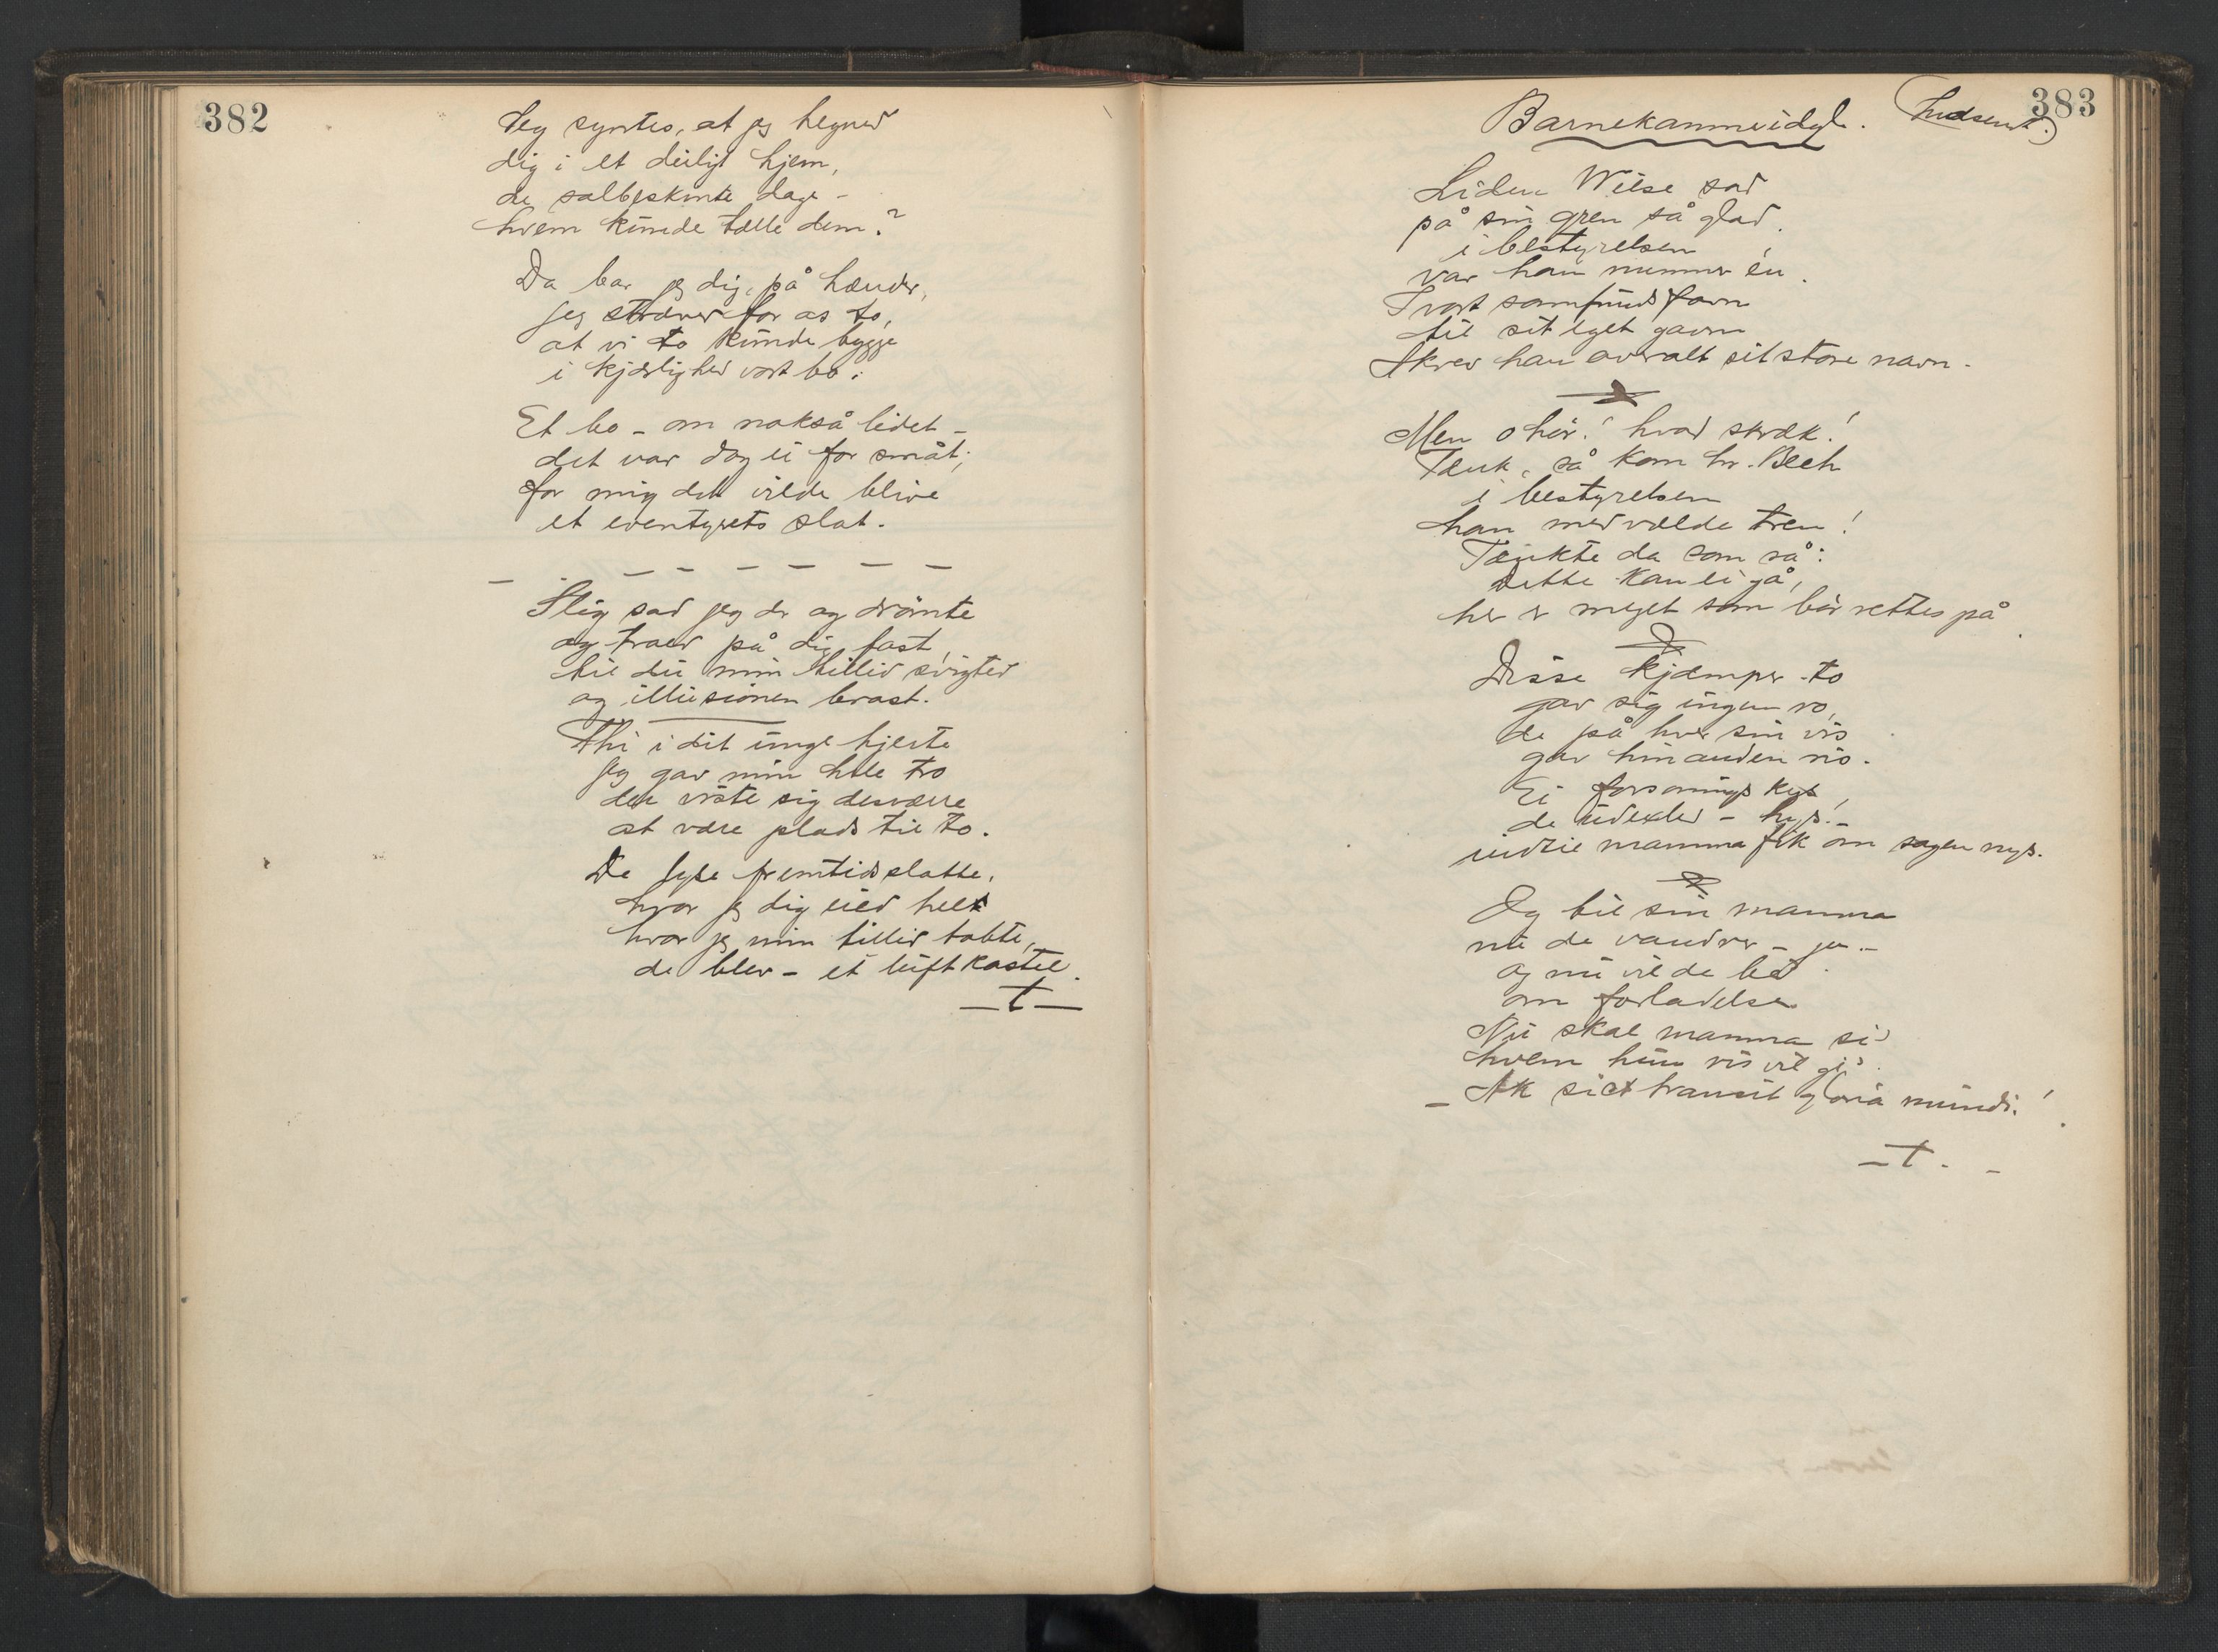 382
Jeg syntes, at jeg hegned
dig i et deiligt hjem,
de solbeskinte dage -
hvem kunde tælle dem?
Da bar jeg dig på hænder,
jeg stræver for os to,
at vi to kunde bygge
i kjærlighed vort bo:
Et bo - om nokså lidet -
det var dog ei for småt;
for mig det vilde blive
et eventyrets slot.
Slig sad jeg der og drömte
og troed på dig fast,
til du min tillid svigted
og illusionen brast.
Thi i dit unge hjerte
jeg gav min hele tro
der viste sig desværre
at være plads til to.
De lyse fremtidsslotte,
hvor jeg dig vied helt
hvor jeg min tillid tabte,
de blev - et luftkastel.
- t -
383
Barnekammeridyl. (Indsendt.)
Liden Wiese sad
på sin gren så glad.
i bestyrelsen
var han nummer én.
I vort samfunds favn
til sit eget gavn
skrev han overalt sit store navn.
Men o hör! hvad skræk!
Tænk, så kom hr. Bech
i bestyrelsen
han med vælde tren!
Tænkte da som så:
Dette kan ei gå,
her er meget som bör rettes på.
Disse kjæmper to
gav sig ingen ro,
de på hver sin vis
gav hinanden ris.
Ei forsonings kys
de udexled - hys! -
indtil mamma fik om sagen nys.
Og til sin mamma
nu de vandrer - ja -
og nu vil de be
om forladelse
Nu skal mamma si'
hvem hun ris vil gi'.
- Ak sict transit gloria mundi!
- t. -